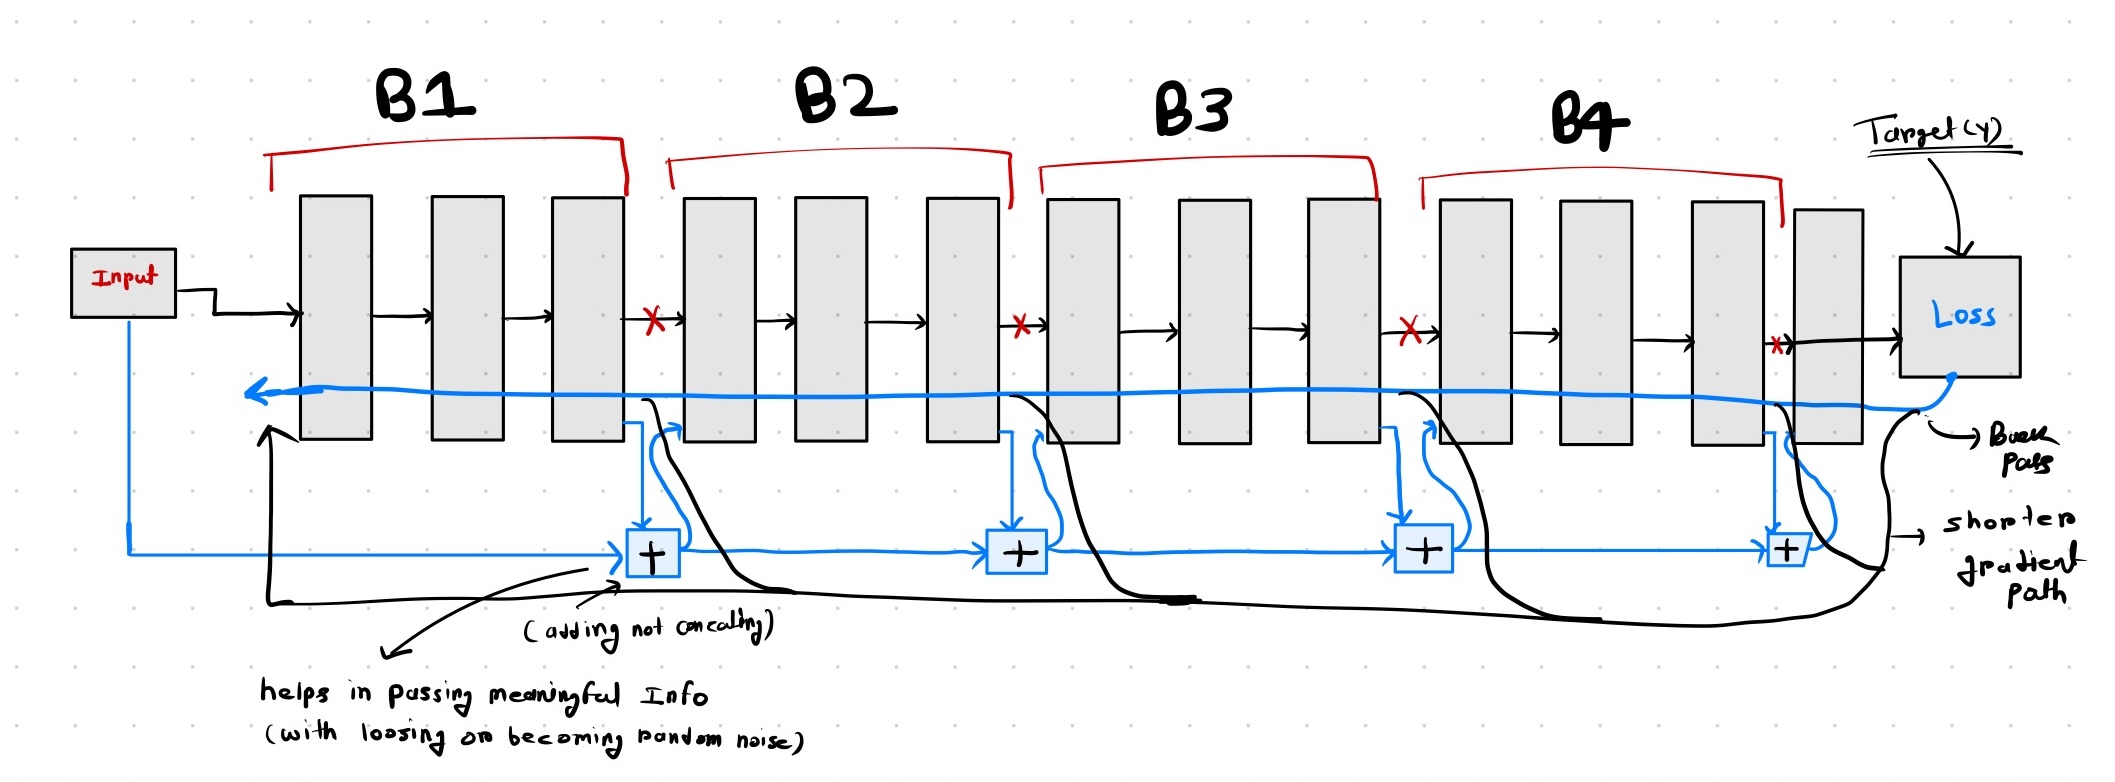 B1
B2
B3
B4
Target(y)
Input
Loss
Back
Pass
shorter
gradient
path
+
+
+
+
(adding not concating)
helps in passing meaningful Info
(with loosing or becoming random noise)